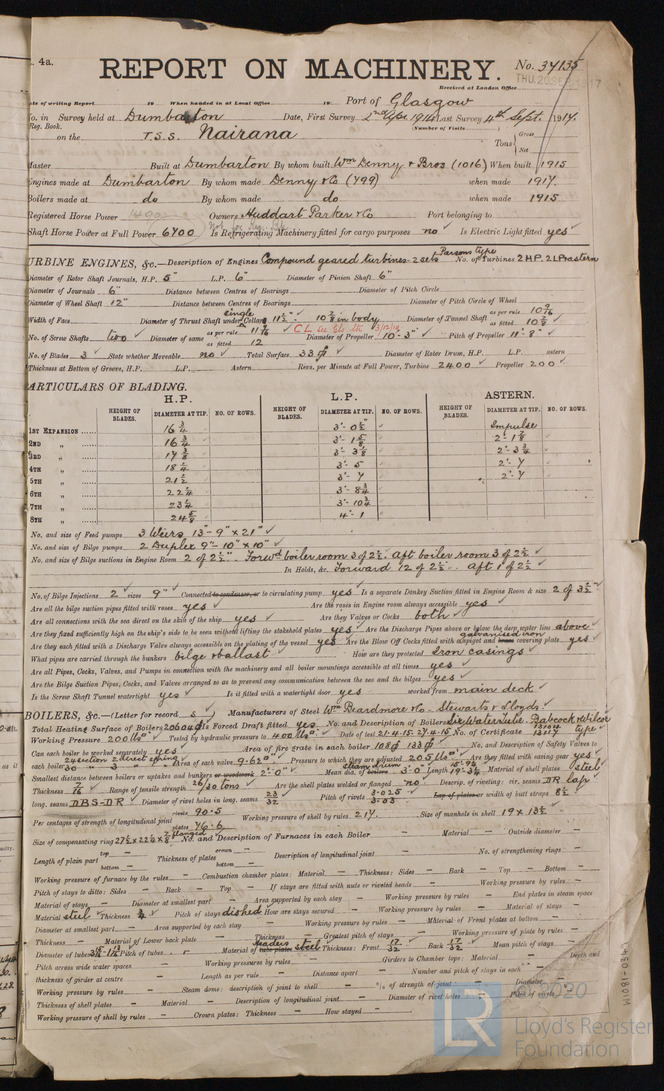 4a.
REPORT ON MACHINERY.
No. 37135
THU. 20 SEP 1917
Received at London Office
Date of writing Report 19 When handed in at Local Office 19 Port of Glasgow
No. in Survey held at Dumbarton Date, First Survey 2nd Last Survey 4th Sept. 1917.
Reg. Book. Number of Visits
on the T.S.S. Nairana Tons Gross Net
Master Built at Dumbarton By whom built Wm Denny & Bros (1016) When built 1915
Engines made at Dumbarton By whom made Denny & Co (799) when made 1917.
Boilers made at do By whom made do when made 1915
Registered Horse Power Owners Huddart Parker & Co Port belonging to
Shaft Horse Power at Full Power 6700 Is Refrigerating Machinery fitted for cargo purposes no Is Electric Light fitted yes
TURBINE ENGINES, &c.—Description of Engines Compound geared turbines - 2 sets Parsons type No. of Turbines 2 H.P. 2 L.P. & astern
Diameter of Rotor Shaft Journals, H.P. 5" L.P. 6" Diameter of Pinion Shaft 6"
Diameter of Journals 6" Distance between Centres of Bearings Diameter of Pitch Circle
Diameter of Wheel Shaft 12" Distance between Centres of Bearings Diameter of Pitch Circle of Wheel
Width of Face Diameter of Thrust Shaft under single Collars 11½" 10⅞ in body Diameter of Tunnel Shaft as per rule as fitted
No. of Screw Shafts two Diameter of same as per rule as fitted 12 Diameter of Propeller 10'-3" Pitch of Propeller 11'-8"
No. of Blades 3 State whether Moveable no Total Surface 33 Diameter of Rotor Drum, H.P. L.P. astern
Thickness at Bottom of Groove, H.P. L.P. Astern Revs. per Minute at Full Power, Turbine 2400 Propeller 200
PARTICULARS OF BLADING.
H.P. L.P. ASTERN.
HEIGHT OF BLADES. DIAMETER AT TIP. NO. OF ROWS. HEIGHT OF BLADES. DIAMETER AT TIP. NO. OF ROWS. HEIGHT OF BLADES. DIAMETER AT TIP. NO. OF ROWS.
1ST EXPANSION 16¾ 3'-0½" Impulse
2ND " 16¾ 3'-1⅝ 2'-1⅞
3RD " 17⅜ 3'-3⅛ 2'-3¾
4TH " 18¼ 3'-5 2'-7
5TH " 21½ 3'-7 2'-7
6TH " 22¼ 3'-8¾
7TH " 23¼ 3'-10¾
8TH " 24⅝ 4'-1
No. and size of Feed pumps 3 Weirs 13"-9" x 21"
No. and size of Bilge pumps 2 Duplex 9"-10" x 10"
No. and size of Bilge suctions in Engine Room 2 of 2½". Forwd boiler room 3 of 2½. Aft boiler room 3 of 2½
In Holds, &c. Forward 12 of 2½. Aft 1 of 2½
No. of Bilge Injections 2 sizes 9" Connected to condenser, or to circulating pump yes Is a separate Donkey Suction fitted in Engine Room & size 2 of 3½"
Are all the bilge suction pipes fitted with roses yes Are the roses in Engine room always accessible yes
Are all connections with the sea direct on the skin of the ship yes Are they Valves or Cocks both
Are they fixed sufficiently high on the ship's side to be seen without lifting the stokehold plates yes Are the Discharge Pipes above or below the deep water line above
Are they each fitted with a Discharge Valve always accessible on the plating of the vessel yes Are the Blow Off Cocks fitted with a spigot and galvanised iron covering plate yes
What pipes are carried through the bunkers bilge & ballast How are they protected Iron casings
Are all Pipes, Cocks, Valves, and Pumps in connection with the machinery and all boiler mountings accessible at all times yes
Are the Bilge Suction Pipes, Cocks, and Valves arranged so as to prevent any communication between the sea and the bilges yes
Is the Screw Shaft Tunnel watertight yes Is it fitted with a watertight door yes worked from main deck
BOILERS, &c.—(Letter for record S) Manufacturers of Steel Wm Beardmore & Co. Stewarts & Lloyds.
Total Heating Surface of Boilers 20604 Is Forced Draft fitted yes No. and Description of Boilers Six Watertube. Babcock & Wilcox type
Working Pressure 200 lbs Tested by hydraulic pressure to 400 lbs Date of test 21.4.15. 27.4.15 No. of Certificate 13117
Can each boiler be worked separately yes Area of fire grate in each boiler 108 133 No. and Description of Safety Valves to
each boiler 2 direct spring Area of each valve 9.62 Pressure to which they are adjusted 205 lbs Are they fitted with easing gear yes
Smallest distance between boilers or uptakes and bunkers or woodwork 2'-0" Mean dia. of steam drum 3'-0" Length Material of shell plates steel
Thickness Range of tensile strength 26/30 tons Are the shell plates welded or flanged no Descrip. of riveting: cir. seams DR lap
long. seams DBS-DR Diameter of rivet holes in long. seams 23/32 Pitch of rivets 3.025 3.03 Lap of plates or width of butt straps 8½
Per centages of strength of longitudinal joint rivets 90.5 plates 76.6 Working pressure of shell by rules 217. Size of manhole in shell 19 x 13½
Size of compensating ring 27½ x 22½ x ⅞ flanged No. and Description of Furnaces in each Boiler Material Outside diameter
Length of plain part top bottom Thickness of plates crown bottom Description of longitudinal joint No. of strengthening rings
Working pressure of furnace by the rules Combustion chamber plates: Material Thickness: Sides Back Top Bottom
Pitch of stays to ditto: Sides Back Top If stays are fitted with nuts or riveted heads Working pressure by rules
Material of stays Diameter at smallest part Area supported by each stay Working pressure by rules End plates in steam space
Material steel Thickness ¾ Pitch of stays dished How are stays secured Working pressure by rules Material of stays
Diameter at smallest part Area supported by each stay Working pressure by rules Material of Front plates at bottom
Thickness Material of Lower back plate Thickness Greatest pitch of stays Working pressure of plate by rules
Diameter of tubes Pitch of tubes Material of headers steel Thickness: Front 17/32 Back 17/32 Mean pitch of stays
Pitch across wide water spaces Working pressures by rules Girders to Chamber tops: Material Depth and
thickness of girder at centre Length as per rule Distance apart Number and pitch of stays in each
Working pressure by rules Steam dome: description of joint to shell % of strength of joint Diameter
Thickness of shell plates Material Description of longitudinal joint Diameter of rivet holes Pitch of rivets
Working pressure of shell by rules Crown plates: Thickness How stayed
© 2020
LR
Lloyd's Register
Foundation